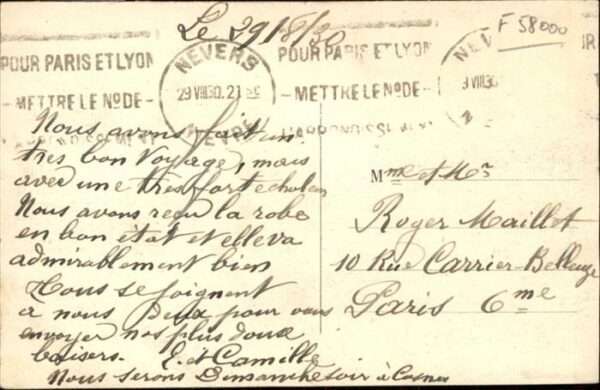 Le 29/8/30
F 58000
POUR PARIS ET LYON
METTRE LE No DE
NEVERS
29 VIII 30. 21
NIEVRE
POUR PARIS ET LYON
METTRE LE No DE
L'ARRONDISSEMENT
Nous avons fait un
tres bon voyage, mais
avec une tres forte chaleur
Nous avons reçu la robe
en bon état et elle va
admirablement bien
Tous se joignent
a nous deux pour vous
envoyer nos plus doux
baisers. E. et Camille
Nous serons Dimanche soir à Cosnes
Mme et Mr
Roger Maillet
10 Rue Carrier-Belleuze
Paris 6me